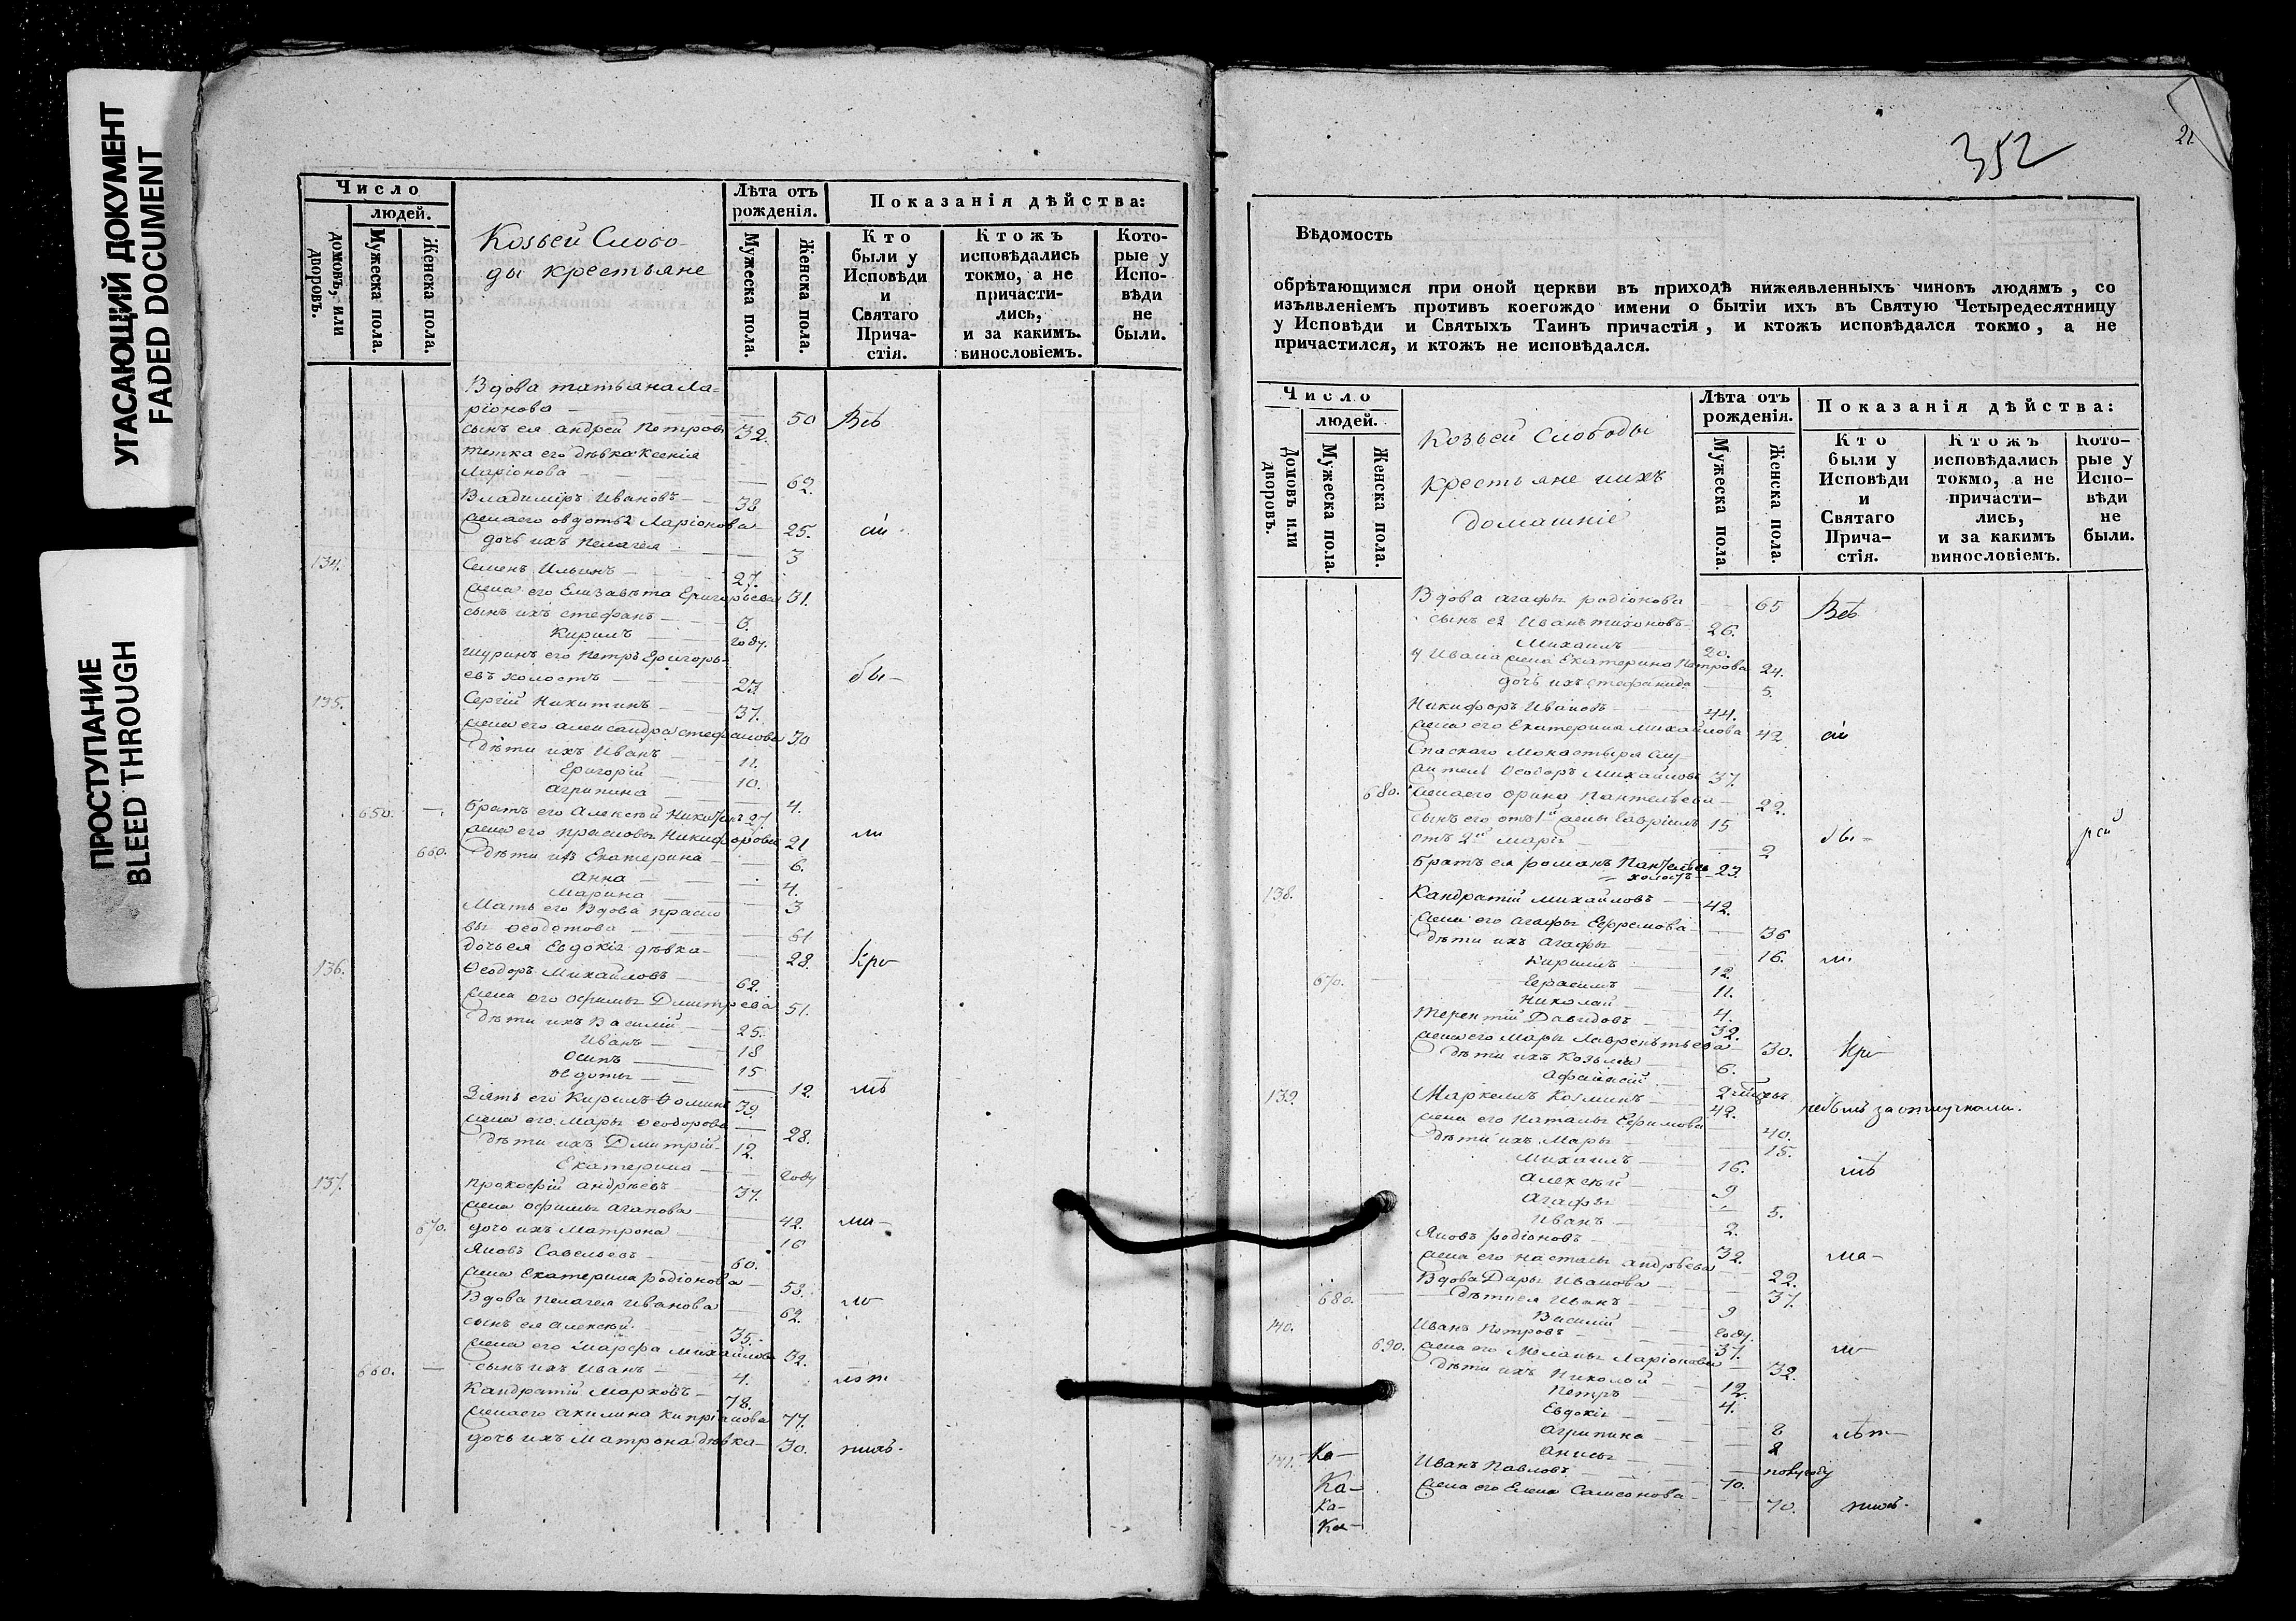 УГАСАЮЩИЙ ДОКУМЕНТ
FADED DOCUMENT
ПРОСТУПАНИЕ
BLEED THROUGH
Число
людей.
домовъ, или дворовъ.
Мужеска пола.
Женска пола.
Козьей Слобо-
ды крестьяне
Лѣта отъ рожденія.
Мужеска пола.
Женска пола.
Показанія дѣйства:
Кто были у Исповѣди и Святаго Прича-стія.
Ктожъ исповѣдались токмо, а не причасти-лись, и за какимъ винословіемъ.
Кото-рые у Испо-вѣди не были.
Вдова татьяна Ла-
ріонова 50 Всѣ
сынъ ея андрей Петровъ 32.
тетка его дѣвка Ксенія
Ларіонова 62.
Владимиръ Ивановъ 33
жена его овдотья Ларіонова 25. сіи
дочь ихъ Пелагея 3
134. Семенъ Ильинъ 27.
жена его Елизавѣта Григорьева 31.
сынъ ихъ стефанъ 3.
Кирилъ году.
шуринъ его Петръ Григорь-
евъ холостъ 23 бы-
135. Сергій Никитинъ 37.
жена его александра стефанова 30
дѣти ихъ Иванъ 11.
Григорій 10.
агрипина 4.
650. братъ его Алексѣй Никитинъ 27.
жена его прасковья Никифорова 21 ли
660. дѣти ихъ Екатерина 6.
анна 4.
Марина 3
Мать его Вдова праско
вья Ѳеодотова 61
дочь ея Евдокія дѣвка 28. Кро
136. Ѳеодоръ Михайловъ 62.
жена его офимья Дмитрева 51.
дѣти ихъ Василій 25.
Иванъ 18
осипъ 15
овдотья 12. мѣ
Зять его Кирилъ Ѳоминъ 39.
жена его Марья Ѳеодорова 28.
дѣти ихъ Дмитрій 12.
Екатерина году
137. прокофій андрѣевъ 37.
жена офимья агапова 42. ма-
670. дочь ихъ Матрона 16
Яковъ Савельевъ 60.
жена Екатерина родіонова 53.
Вдова Пелагея Иванова 62. ло
сынъ ея алексѣй 35.
жена его Марфа Михайлова 32.
660. сынъ ихъ Иванъ 4. лѣт
Кандратій Марковъ 78.
жена его акилина Кипріанова 77.
дочь ихъ Матрона дѣвка 30. нихъ.
352
21
Вѣдомость
обрѣтающимся при оной церкви въ приходѣ нижеявленныхъ чиновъ людямъ, со
изъявленіемъ противъ коегождо имени о бытіи ихъ въ Святую Четыредесятницу
у Исповѣди и Святыхъ Таинъ причастія, и ктожъ исповѣдался токмо, а не
причастился, и ктожъ не исповѣдался.
Число
людей.
Домовъ или дворовъ.
Мужеска пола.
Женска пола.
Козьей Слободы
крестьяне ихъ
домашніе
Лѣта отъ рожденія.
Мужеска пола.
Женска пола.
Показанія дѣйства:
Кто были у Исповѣди и Святаго Прича-стія.
Ктожъ исповѣдались токмо, а не причасти-лись, и за какимъ винословіемъ.
Кото-рые у Испо-вѣди не были.
Вдова агафья родіонова 65 Всѣ
сынъ ея Иванъ тихоновъ 26.
Михаилъ 20.
у Ивана жена Екатерина Петрова 24.
дочь ихъ стефанида 5.
Никифоръ Ивановъ 44.
жена его Екатерина михайлова 42 сіи
Спаскаго Монастыря слу-
житель Ѳеодоръ Михайловъ 37
680. жена его орина Пантелѣева 22.
сынъ его отъ 1й жены Гавріилъ 15
отъ 2й марья 2 бы-
братъ ея романъ Пантелѣев
холостъ 23.
138. Кандратій михайловъ 42.
жена его агафья Ефремова 36
дѣти ихъ агафья 16. ли
Кирилъ 12.
670. Герасимъ 11.
Николай 4.
терентій Давидовъ 32.
жена его Марья Лаврентьева 30. Кро
дѣти ихъ Козьма 6.
афанасій
139. Маркелъ Козминъ 42. небылъ за отлучками.
жена его Наталья Ефимова 40.
дѣти ихъ Марья 15.
михаилъ 16. мѣ
алексѣй 9
агафья 5.
иванъ 2.
Яковъ родіоновъ 32. ма-
жена его настасья андрѣева 22.
Вдова Дарья Иванова 37.
680. дѣти ея Иванъ 9
Василій году.
140. Иванъ Петровъ 37. ло
690. жена его Меланья Ларіонова 32.
дѣти ихъ Николай 12.
Петръ 4.
Евдокія 8
агрипина 2 лѣт-
анисья полугоду
141. Ка- Иванъ Павловъ 70.
Ка- жена его Елена Самсонова 70. нихъ.
Ка-
Ка-